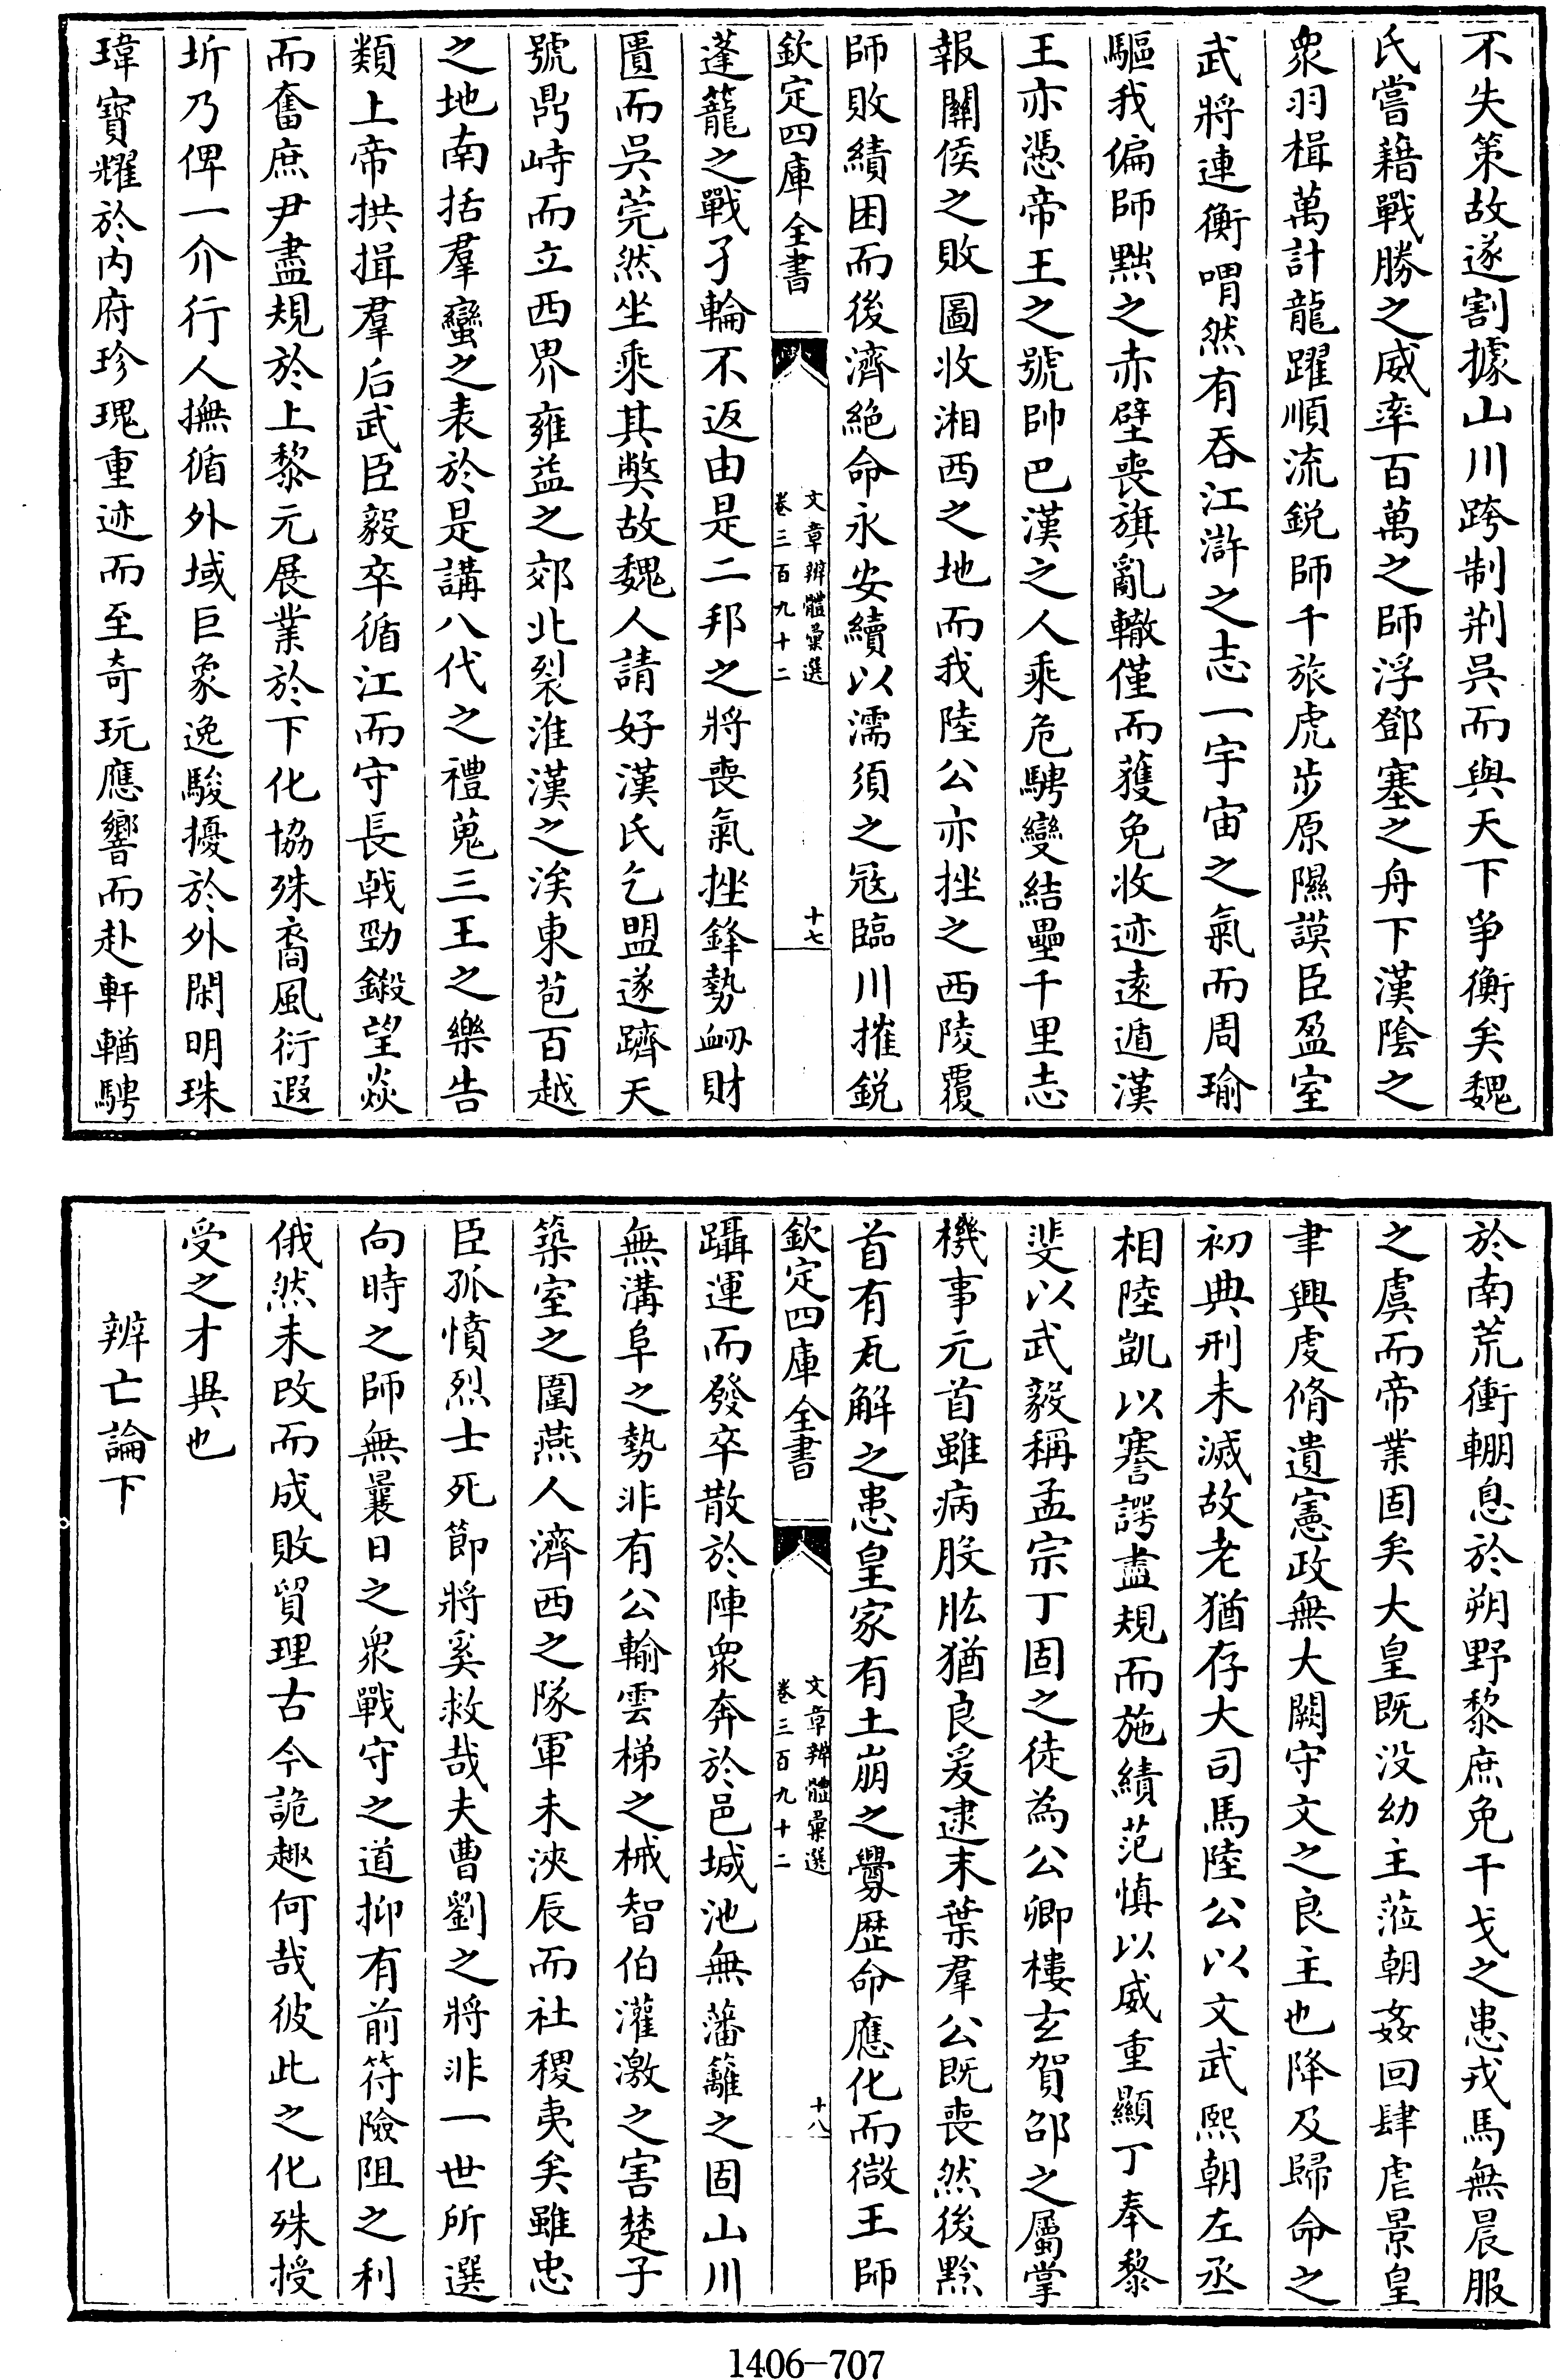 不失策故遂割據山川跨制荆吳而與天下爭衡矣魏
氏嘗藉戰勝之威率百萬之師浮鄧塞之舟下漢陰之
衆羽楫萬計龍躍順流鋭師千旅虎步原隰謨臣盈室
武將連衡喟然有吞江滸之志一宇宙之氣而周瑜
驅我偏師黜之赤壁喪旗亂轍僅而獲免收迹遠遁漢
王亦憑帝王之號帥巴漢之人乘危騁變結壘千里志
報關侯之敗圖收湘西之地而我陸公亦挫之西陵覆
師敗績困而後濟絶命永安續以濡須之冦臨川摧鋭
欽定四庫全書
文章辨體彙選
卷三百九十二
十七
蓬籠之戰孑輪不返由是二邦之將喪氣挫鋒勢衂財
匱而吳莞然坐乘其弊故魏人請好漢氏乞盟遂躋天
號鼎峙而立西界雍益之郊北裂淮漢之涘東苞百越
之地南括羣蠻之表於是講八代之禮蒐三王之樂告
類上帝拱揖羣后武臣毅卒循江而守長㦸勁鎩望焱
而奮庶尹盡規於上黎元展業於下化協殊裔風衍遐
圻乃俾一介行人撫循外域巨象逸駿擾於外閑明珠
瑋寶耀於内府珍瑰重迹而至奇玩應響而赴軒輶騁
於南荒衝輣息於朔野黎庶免干戈之患戎馬無晨服
之虞而帝業固矣大皇既没幼主蒞朝姦回肆虐景皇
聿興虔脩遺憲政無大闕守文之良主也降及歸命之
初典刑未滅故老猶存大司馬陸公以文武熙朝左丞
相陸凱以謇諤盡規而施績范慎以威重顯丁奉黎
斐以武毅稱孟宗丁固之徒為公卿樓玄賀邵之屬掌
機事元首雖病股肱猶良爰逮末葉羣公既喪然後黔
首有瓦解之患皇家有土崩之釁歴命應化而微王師
欽定四庫全書
文章辨體彙選
卷三百九十二
十八
躡運而發卒散於陣衆奔於邑城池無藩籬之固山川
無溝阜之勢非有公輸雲梯之械智伯灌激之害楚子
築室之圍燕人濟西之隊軍未浹辰而社稷夷矣雖忠
臣孤憤烈士死節將奚救哉夫曹劉之將非一世所選
向時之師無曩日之衆戰守之道抑有前符險阻之利
俄然未改而成敗貿理古今詭趣何哉彼此之化殊授
受之才異也
辨亡論下
1406-707